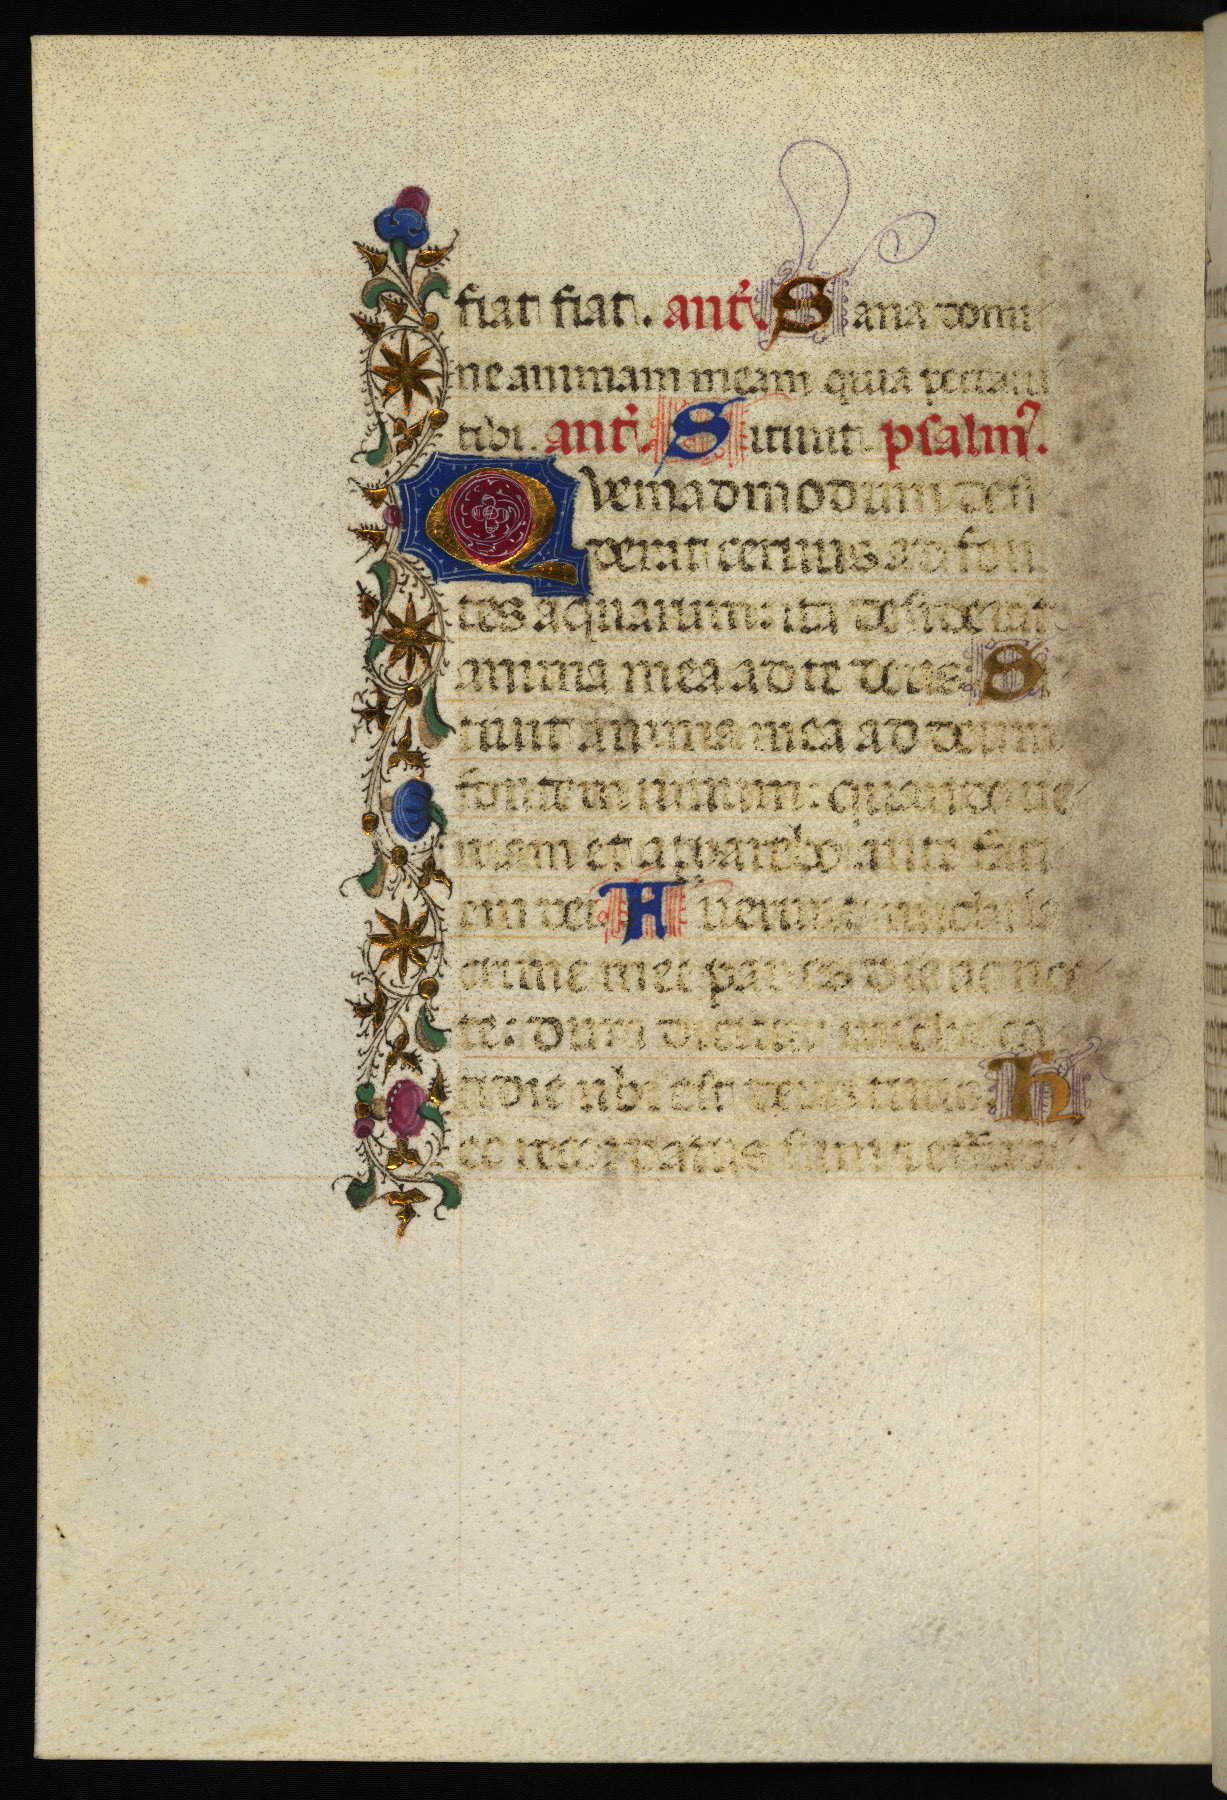 fiat fiat. ant̃. Sana domi
ne animam meam quia peccaui
tibi. ant̃. Sitiuit psalm̃9.
Quemadmodum desi
derat ceruus ad fon
tes aquarum: ita desiderat
anima mea ad te deus. Si
tiuit anima mea ad deum
fontem uiuum: quando ue
niam et apparebo ante faci
em dei. Fuerunt michi la
crime mee panes die ac noc
te: dum dicitur michi co
tidie ubi est deus tuus. H
ec recordatus sum et effudi